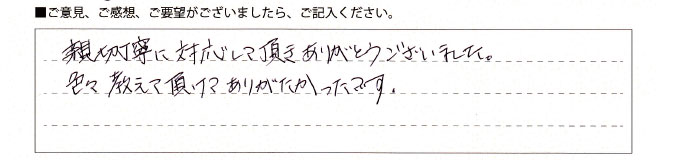 ■ご意見、ご感想、ご要望がございましたら、ご記入ください。
親切丁寧に対応して頂きありがとうございました。
色々教えて頂けてありがたかったです。